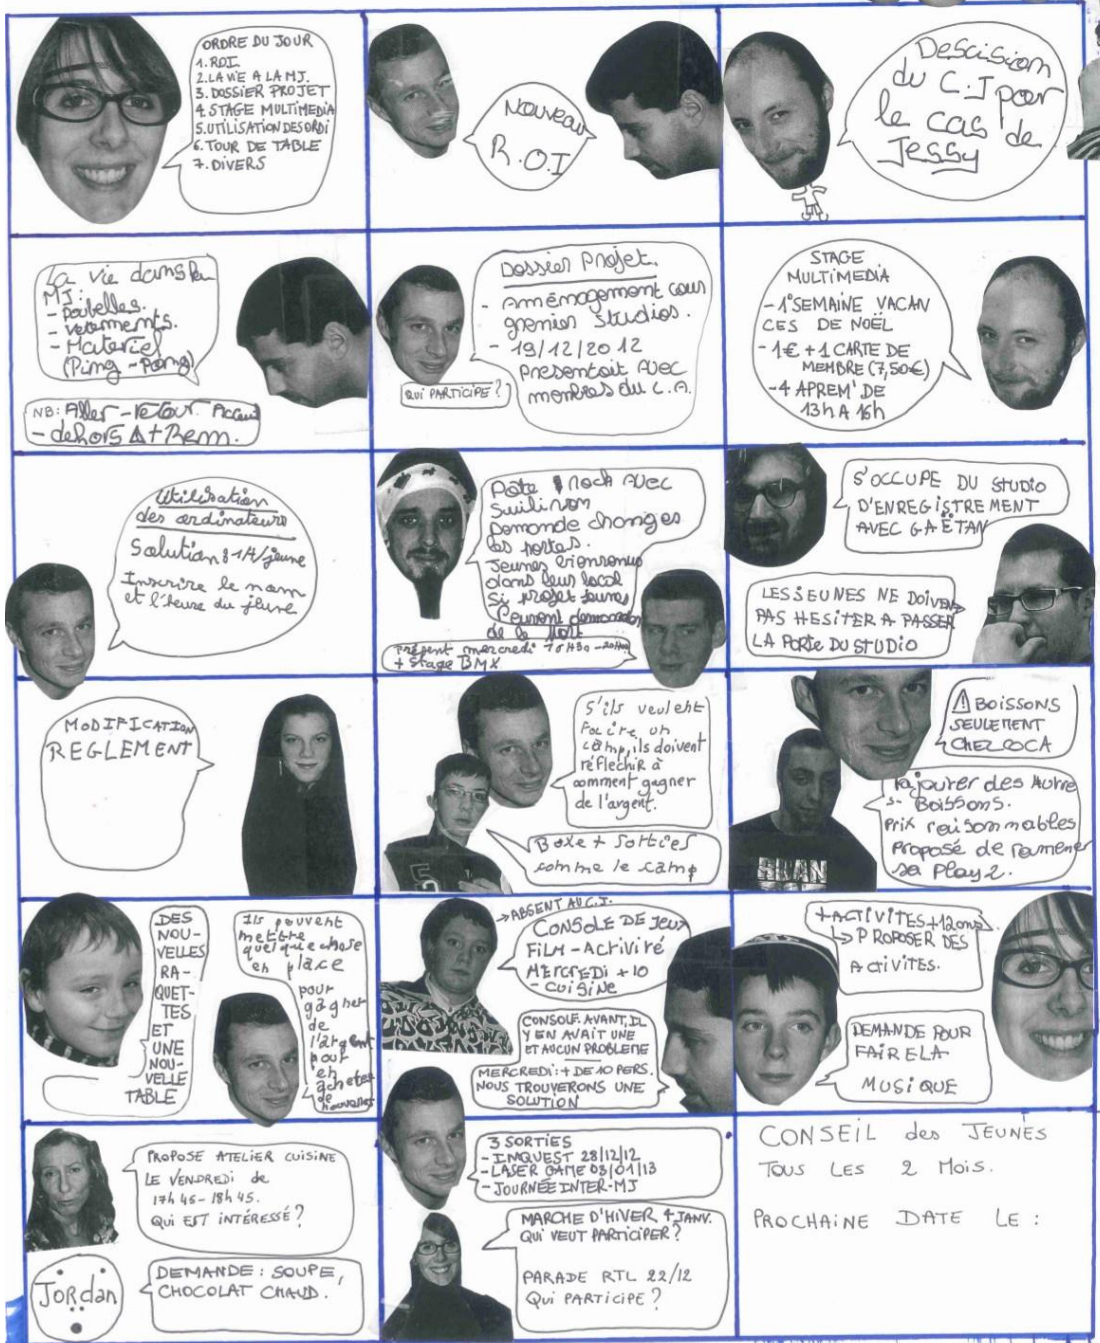 ORDRE DU JOUR
1. ROI
2. LA VIE A LA MJ.
3. DOSSIER PROJET
4 STAGE MULTIMEDIA
5. UTILISATION DES ORDI
6. TOUR DE TABLE
7. DIVERS
Nouveau
R.O.I
Descision
du C.J pour
le cas de
Jessy
La vie dans la
MJ:
- poubelles.
- vetements.
- Materiel
(Ping-Pong)
NB: Aller-retour Accueil
- dehors
Dossier Projet.
- Aménagement cour
grenier Studios.
- 19/12/2012
Presentait Avec
membres du C.A.
QUI PARTICIPE?
STAGE
MULTIMEDIA
- 1° SEMAINE VACAN
CES DE NOËL
- 1€ + 1 CARTE DE
MEMBRE (7,50€)
- 4 APREM' DE
13h A 16h
Utilisation
des ordinateurs
Solution: 1H/jeune
Inscrire le nom
et l'heure du jeune
Rock Avec
Demande changes
les portes.
Jeunes bienvenus
dans leur local
Si projet jeunes
Peuvent demander
de la
Présent mercredi
+ Stage BMX
S'OCCUPE DU STUDIO
D'ENREGISTREMENT
AVEC GAËTAN
LES JEUNES NE DOIVEN
PAS HESITER A PASSER
LA PORTE DU STUDIO
MODIFICATION
REGLEMENT
S'ils veulent
Faire un
camp, ils doivent
réflechir à
comment gagner
de l'argent.
Boxe + Sorties
comme le camp
⚠ BOISSONS
SEULEMENT
CHEZ COCA
Rajouter des Autre
s- Boissons.
Prix raisonnables
Proposé de ramener
sa Play 2.
BRAN
DES
NOU-
VELLES
RA-
QUET-
TES
ET
UNE
NOU-
VELLE
TABLE
Ils peuvent
mettre
quelque chose
en place
pour
gagner
de
l'argent
pour
en
acheter
de
nouvelles
→ ABSENT AU C.J.
CONSOLE DE JEUX
FILM - Activité
MERCREDI + 10
- CUISINE
CONSOLE: AVANT, IL
Y EN AVAIT UNE
ET AUCUN PROBLEME
MERCREDI: + DE 10 PERS.
NOUS TROUVERONS UNE
SOLUTION
+ ACTIVITES + 12 ans
↳ PROPOSER DES
ACTIVITES.
DEMANDE POUR
FAIRE LA
MUSIQUE
PROPOSE ATELIER CUISINE
LE VENDREDI de
17h45-18h45.
QUI EST INTÉRESSÉ?
Jordan
DEMANDE: SOUPE,
CHOCOLAT CHAUD.
3 SORTIES
- IMQUEST 28/12/12
- LASER GAME 03/01/13
- JOURNÉE INTER-MJ
MARCHE D'HIVER 4 JANV.
QUI VEUT PARTICIPER?
PARADE RTL 22/12
QUI PARTICIPE?
CONSEIL des JEUNES
TOUS LES 2 MOIS.
PROCHAINE DATE LE :